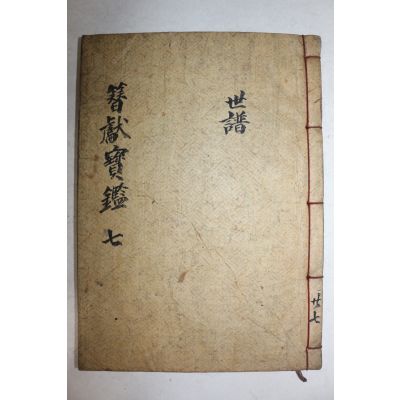 簪獻寶鑑 七
世譜
共七